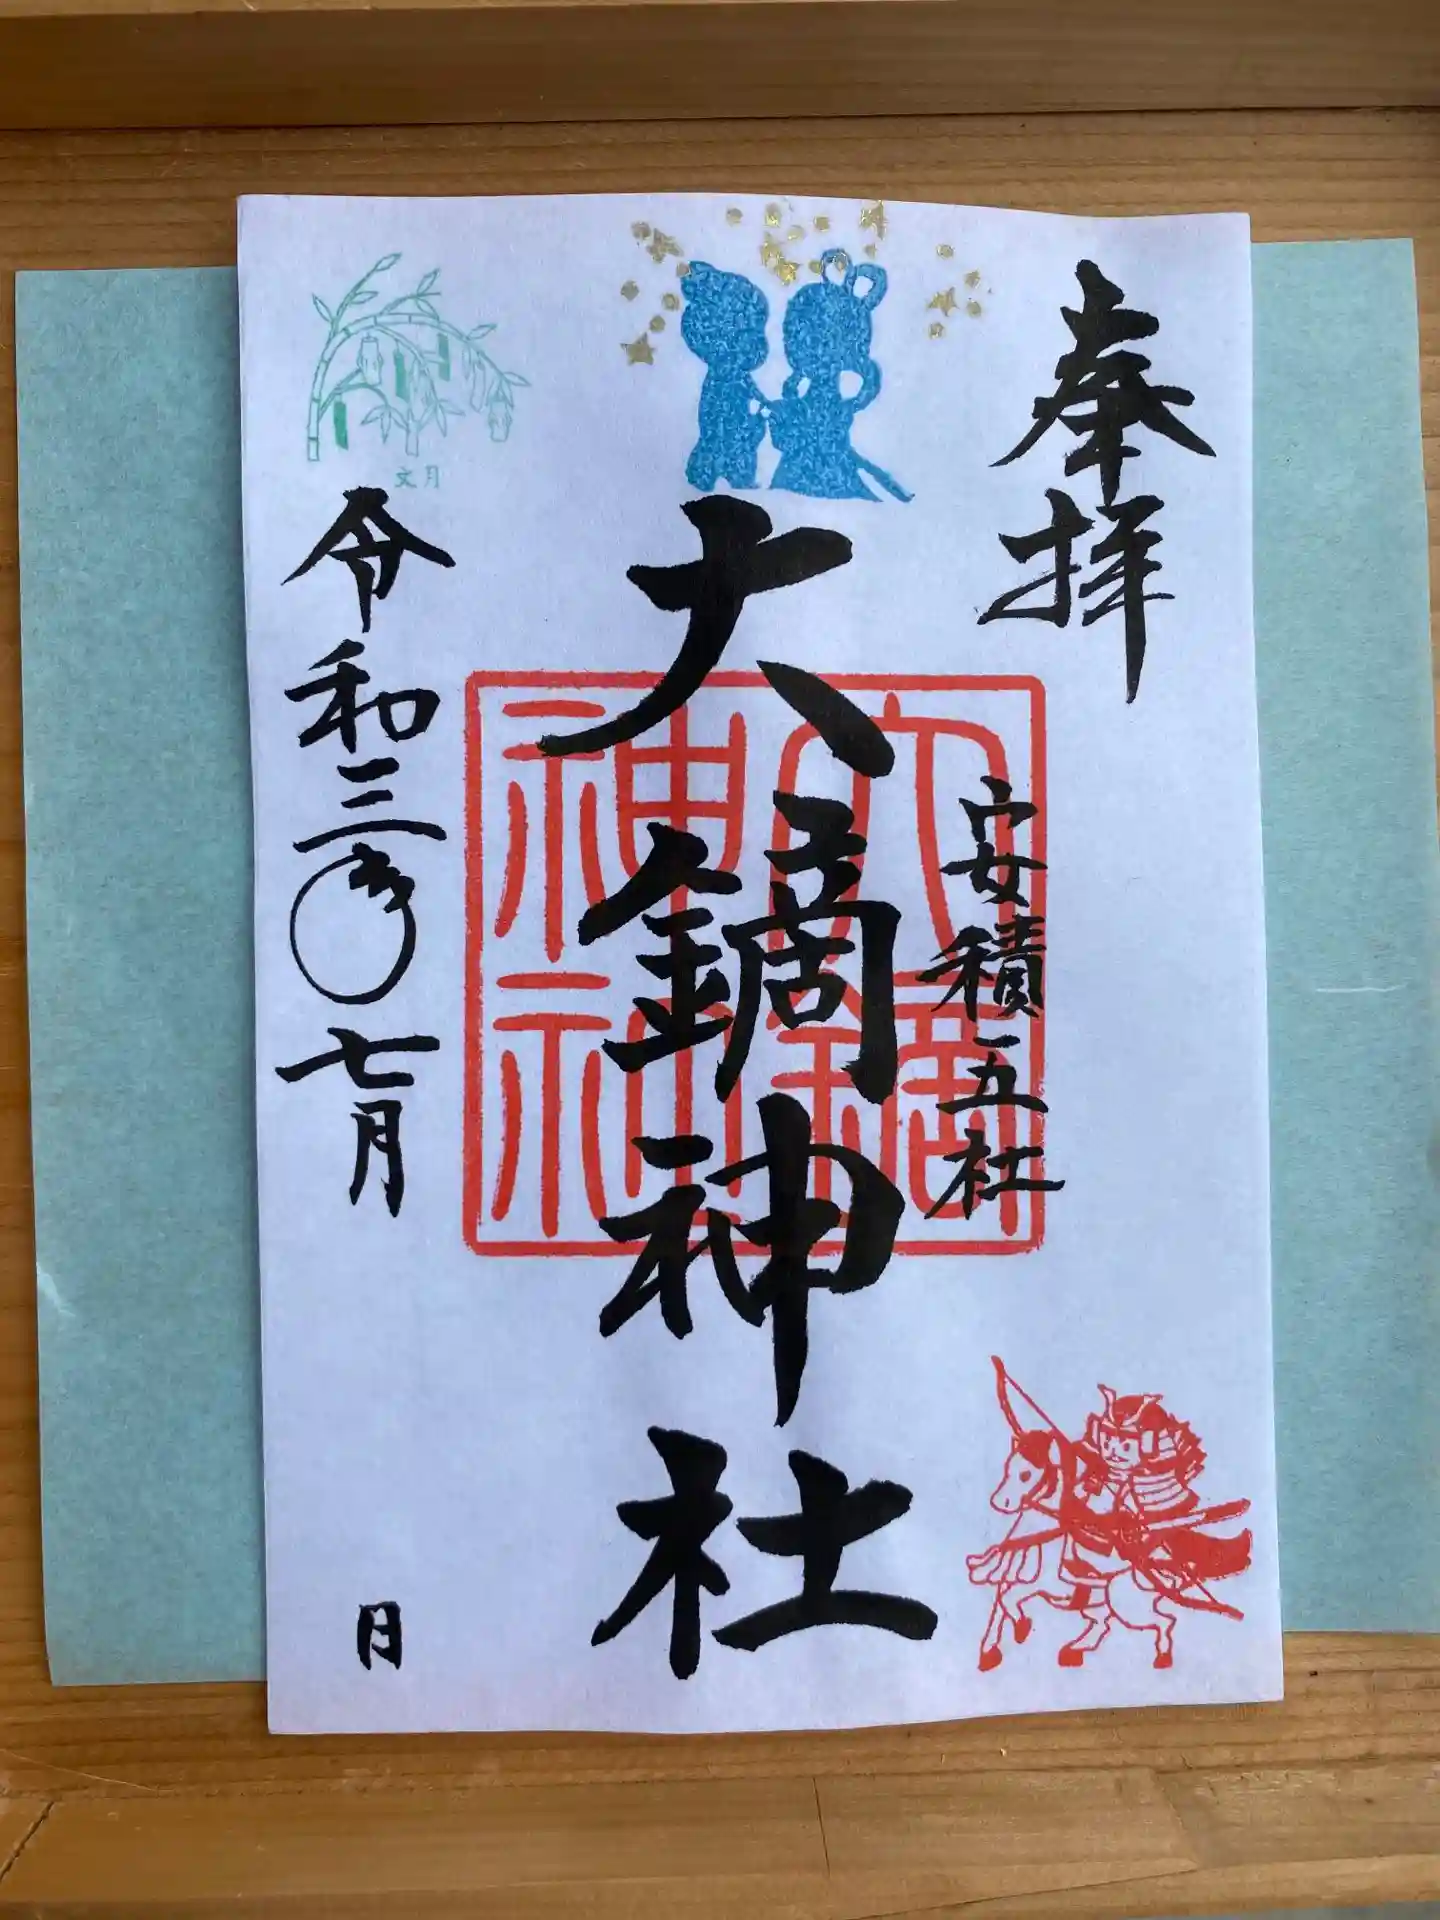 奉拝
安積五社
大鏑神社
大鏑神社
文月
令和三年七月
日